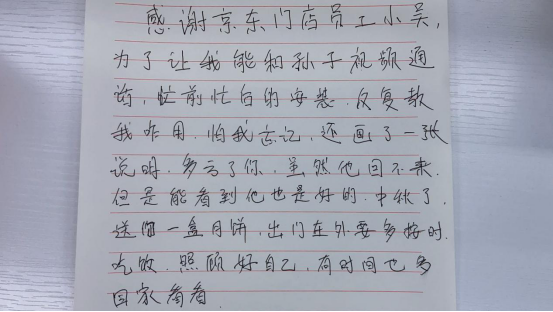 感谢京东门店员工小吴,
为了让我能和孙子视频通
话,忙前忙后的安装.反复教
我咋用.怕我忘记,还画了一张
说明.多亏了你,虽然他回不来.
但是能看到他也是好的.中秋了.
送你一盒月饼,出门在外要多按时
吃饭.照顾好自己,有时间也多
回家看看